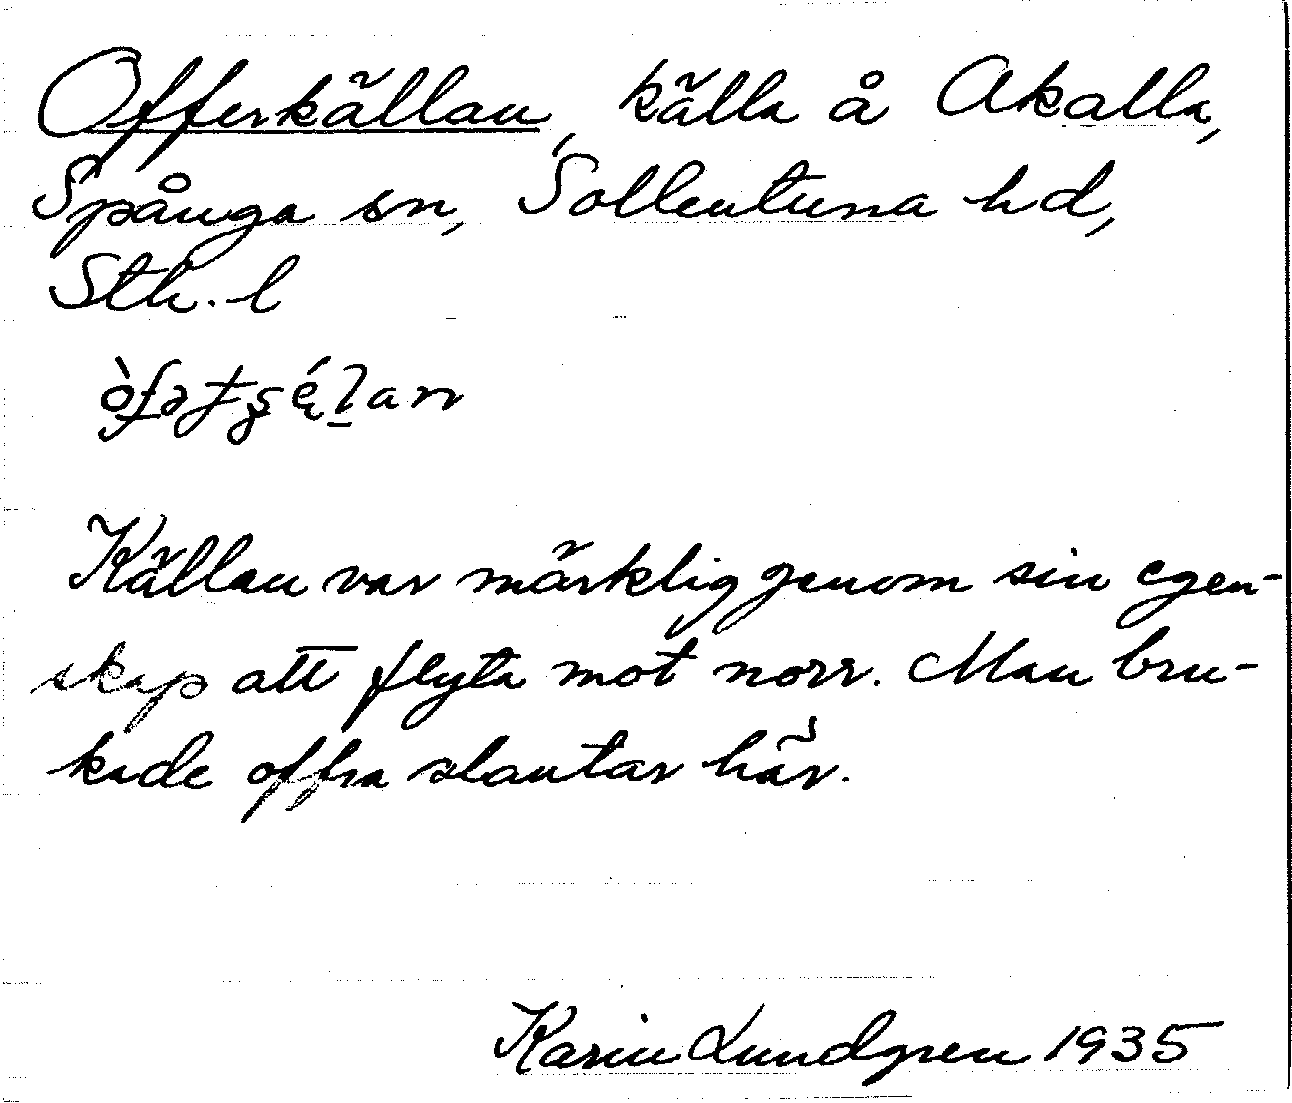 Offerkällan, källa å Akalla,
Spånga sn, Sollentuna hd,
Sth. l
Källan var märklig genom sin egen-
skap att flyta mot norr. Man bru-
kade offra slantar här.
Karin Lundgren 1935